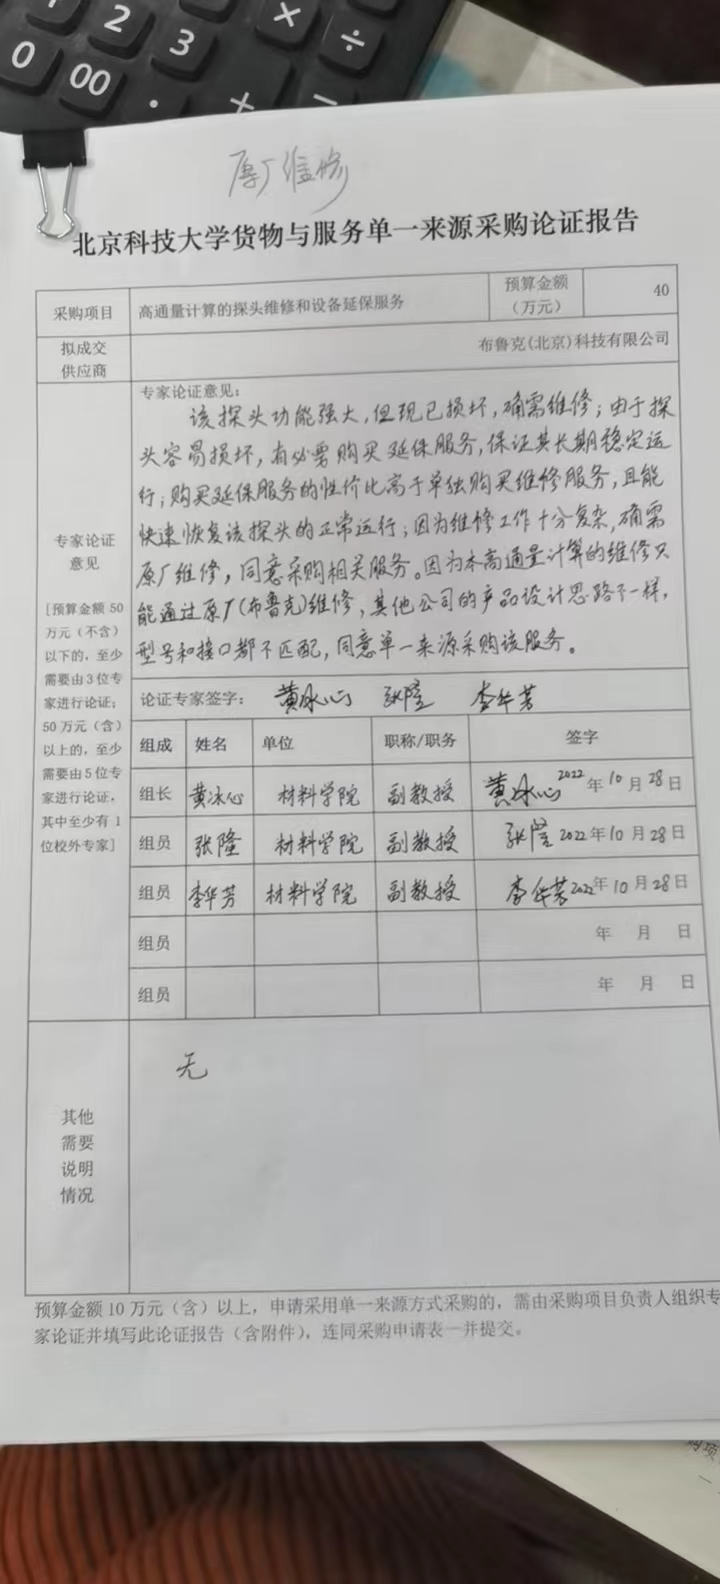 1 2 3 × ÷
0 00 . + −
原厂维修
北京科技大学货物与服务单一来源采购论证报告
采购项目 高通量计算的探头维修和设备延保服务 预算金额（万元） 40
拟成交供应商 布鲁克(北京)科技有限公司
专家论证意见
[预算金额 50
万元（不含）
以下的，至少
需要由 3 位专
家进行论证；
50 万元（含）
以上的，至少
需要由 5 位专
家进行论证，
其中至少有 1
位校外专家]
专家论证意见：
该探头功能强大，但现已损坏，确需维修；由于探
头容易损坏，有必要购买延保服务，保证其长期稳定运
行；购买延保服务的性价比高于单独购买维修服务，且能
快速恢复该探头的正常运行；因为维修工作十分复杂，确需
原厂维修，同意采购相关服务。因为本高通量计算的维修只
能通过原厂(布鲁克)维修，其他公司的产品设计思路不一样，
型号和接口都不匹配，同意单一来源采购该服务。
论证专家签字： 黄冰心 张隆 李华芳
组成 姓名 单位 职称/职务 签字
组长 黄冰心 材料学院 副教授 黄冰心 2022年10月28日
组员 张隆 材料学院 副教授 张隆 2022年10月28日
组员 李华芳 材料学院 副教授 李华芳 2022年10月28日
组员 年 月 日
组员 年 月 日
其他
需要
说明
情况
无
预算金额 10 万元（含）以上，申请采用单一来源方式采购的，需由采购项目负责人组织专
家论证并填写此论证报告（含附件），连同采购申请表一并提交。
购项